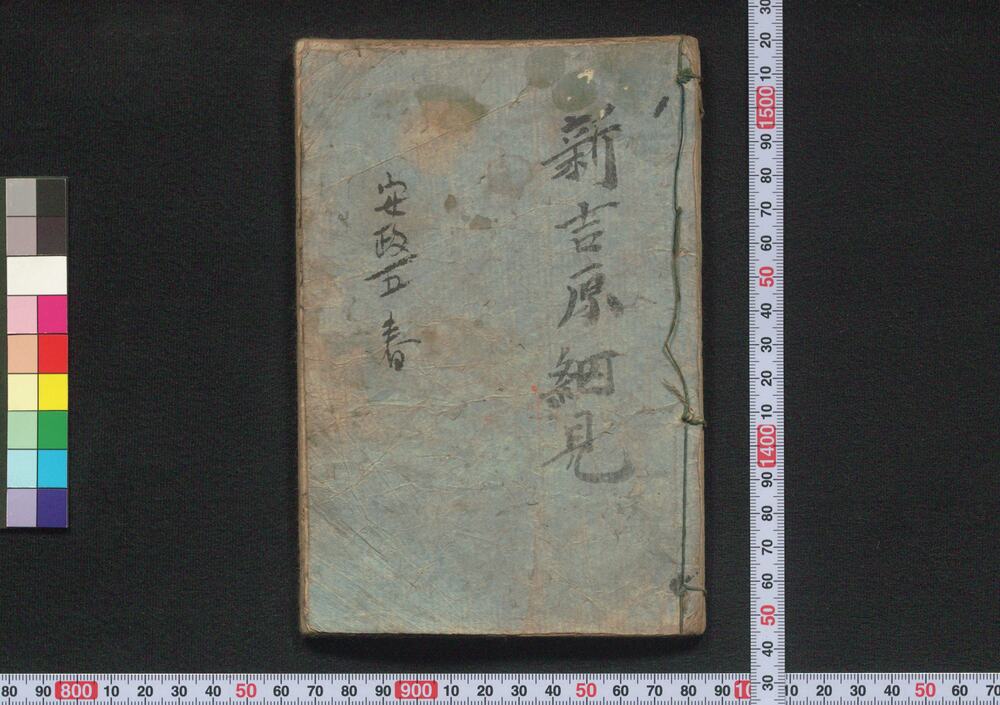 新吉原細見
安政五 春
80 90 800 10 20 30 40 50 60 70 80 90 900 10 20 30 40 50 60 70 80 90 10 10 20 30 40 50 60 70
30 20 10 1500 90 80 70 60 50 40 30 20 10 1400 90 80 70 60 50 40 30